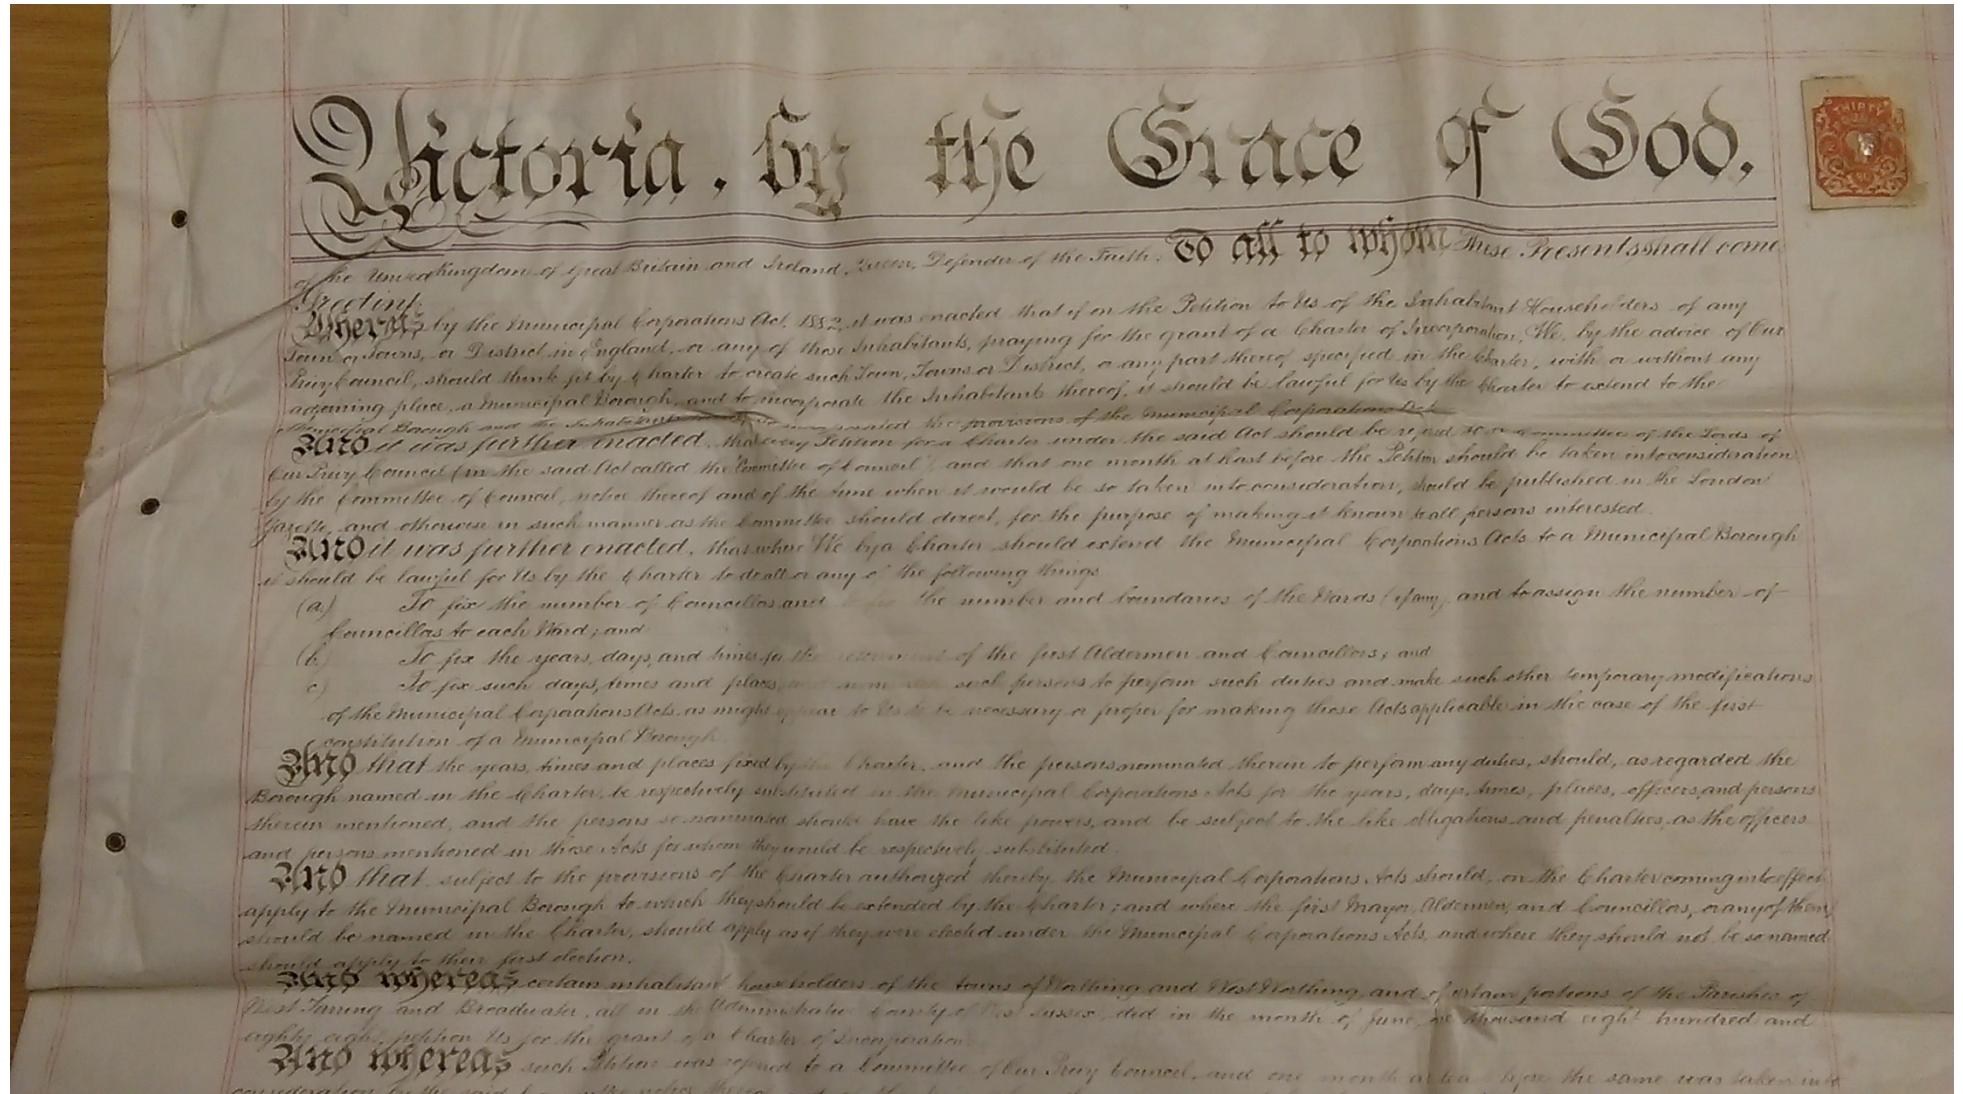 Victoria, by the Grace of God,
THIRTY
of the United Kingdom of Great Britain and Ireland, Queen, Defender of the Faith: To all to whom These Presents shall come
Greeting.
Whereas by the Municipal Corporations Act, 1882, it was enacted that if on the Petition to Us of the Inhabitant Householders of any
Town or Towns, or District in England, or any of those Inhabitants, praying for the grant of a Charter of Incorporation, We, by the advice of Our
Privy Council, should think fit by Charter to create such Town, Towns or District, or any part thereof specified in the Charter, with or without any
adjoining place, a Municipal Borough, and to incorporate the Inhabitants thereof, it should be lawful for Us by the Charter to extend to the
Municipal Borough and the Inhabitants incorporated the provisions of the Municipal Corporations Act
And it was further enacted, that every Petition for a Charter under the said Act should be referred to a Committee of the Lords of
Our Privy Council (in the said Act called the "Committee of Council"), and that one month at least before the Petition should be taken into consideration
by the Committee of Council, notice thereof and of the time when it would be so taken into consideration, should be published in the London
Gazette, and otherwise in such manner as the Committee should direct, for the purpose of making it known to all persons interested.
And it was further enacted, that where We by a Charter should extend the Municipal Corporations Acts to a Municipal Borough
it should be lawful for Us by the Charter to do all or any of the following things
(a) To fix the number of Councillors and to fix the number and boundaries of the Wards (if any), and to assign the number of
Councillors to each Ward; and
(b) To fix the years, days, and times for the retirement of the first Aldermen and Councillors; and
(c) To fix such days, times and places, and nominate such persons to perform such duties and make such other temporary modifications
of the Municipal Corporations Acts as might appear to Us to be necessary or proper for making those Acts applicable in the case of the first
constitution of a Municipal Borough
And that the years, times and places fixed by the Charter, and the persons nominated therein to perform any duties, should, as regarded the
Borough named in the Charter, be respectively substituted in the Municipal Corporations Acts for the years, days, times, places, officers, and persons
therein mentioned, and the persons so nominated should have the like powers, and be subject to the like obligations and penalties, as the officers
and persons mentioned in those Acts for whom they would be respectively substituted.
And that subject to the provisions of the Charter authorized thereby, the Municipal Corporations Acts should, on the Charter coming into effect
apply to the Municipal Borough to which they should be extended by the Charter; and where the first Mayor, Aldermen, and Councillors, or any of them,
should be named in the Charter, should apply as if they were elected under the Municipal Corporations Acts, and where they should not be so named
should apply to their first election.
And whereas certain inhabitant householders of the towns of Worthing and West Worthing, and of certain portions of the Parishes of
West Tarring and Broadwater, all in the Administrative County of West Sussex, did in the month of June, one thousand eight hundred and
eighty eight, petition Us for the grant of a Charter of Incorporation
And whereas such Petition was referred to a Committee of Our Privy Council, and one month at least before the same was taken into
consideration by the said Committee notice thereof